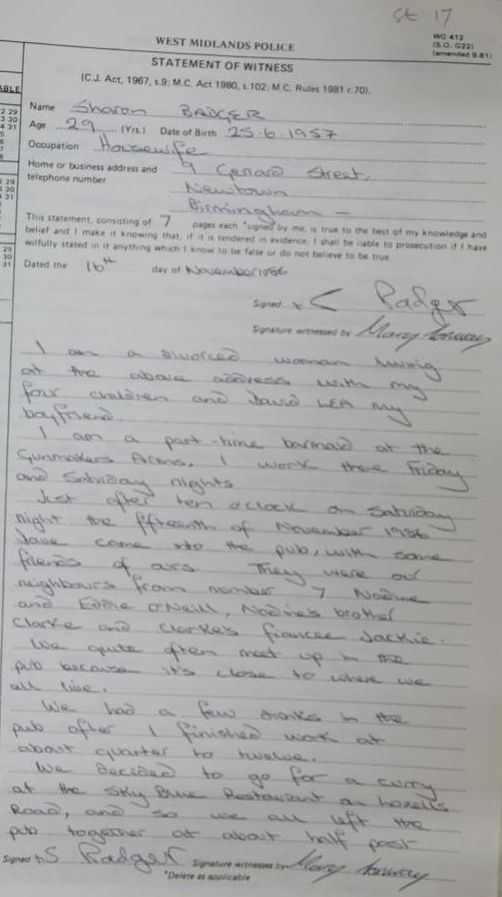 St 17
WG 412
(S.O. G22)
(amended 9.81)
WEST MIDLANDS POLICE
STATEMENT OF WITNESS
(C.J. Act, 1967, s.9; M.C. Act 1980, s.102; M.C. Rules 1981 r.70).
Name Sharon BADGER
Age 29 (Yrs.) Date of Birth 25.6.1957
Occupation Housewife
Home or business address and 9 Gerrard Street,
telephone number Newtown
Birmingham -
This statement, consisting of 7 pages each *signed by me, is true to the best of my knowledge and
belief and I make it knowing that, if it is tendered in evidence, I shall be liable to prosecution if I have
wilfully stated in it anything which I know to be false or do not believe to be true.
Dated the 16th day of November 1986
Signed x S Badger
Signature witnessed by Mary
I am a divorced woman living
at the above address with my
four children and David LEA my
boyfriend.
I am a part-time barmaid at the
Gunmakers Arms. I work there Friday
and Saturday nights
Just after ten o'clock on Saturday
night the fifteenth of November 1986
Dave came into the pub, with some
friends of ours. They were our
neighbours from number 7 Nadine
and Eddie O'Neill, Nadine's brother
Clarke and Clarke's fiancee Jackie.
We quite often meet up in the
pub because it's close to where we
all live.
We had a few drinks in the
pub after I finished work at
about quarter to twelve.
We decided to go for a curry
at the Sky Blue Restaurant on Lozells
Road, and so we all left the
pub together at about half past
Signed S Badger Signature witnessed by Mary
*Delete as applicable
ABLE
2 29
3 30
4 31
5
6
7
8
29
30
31
29
30
31